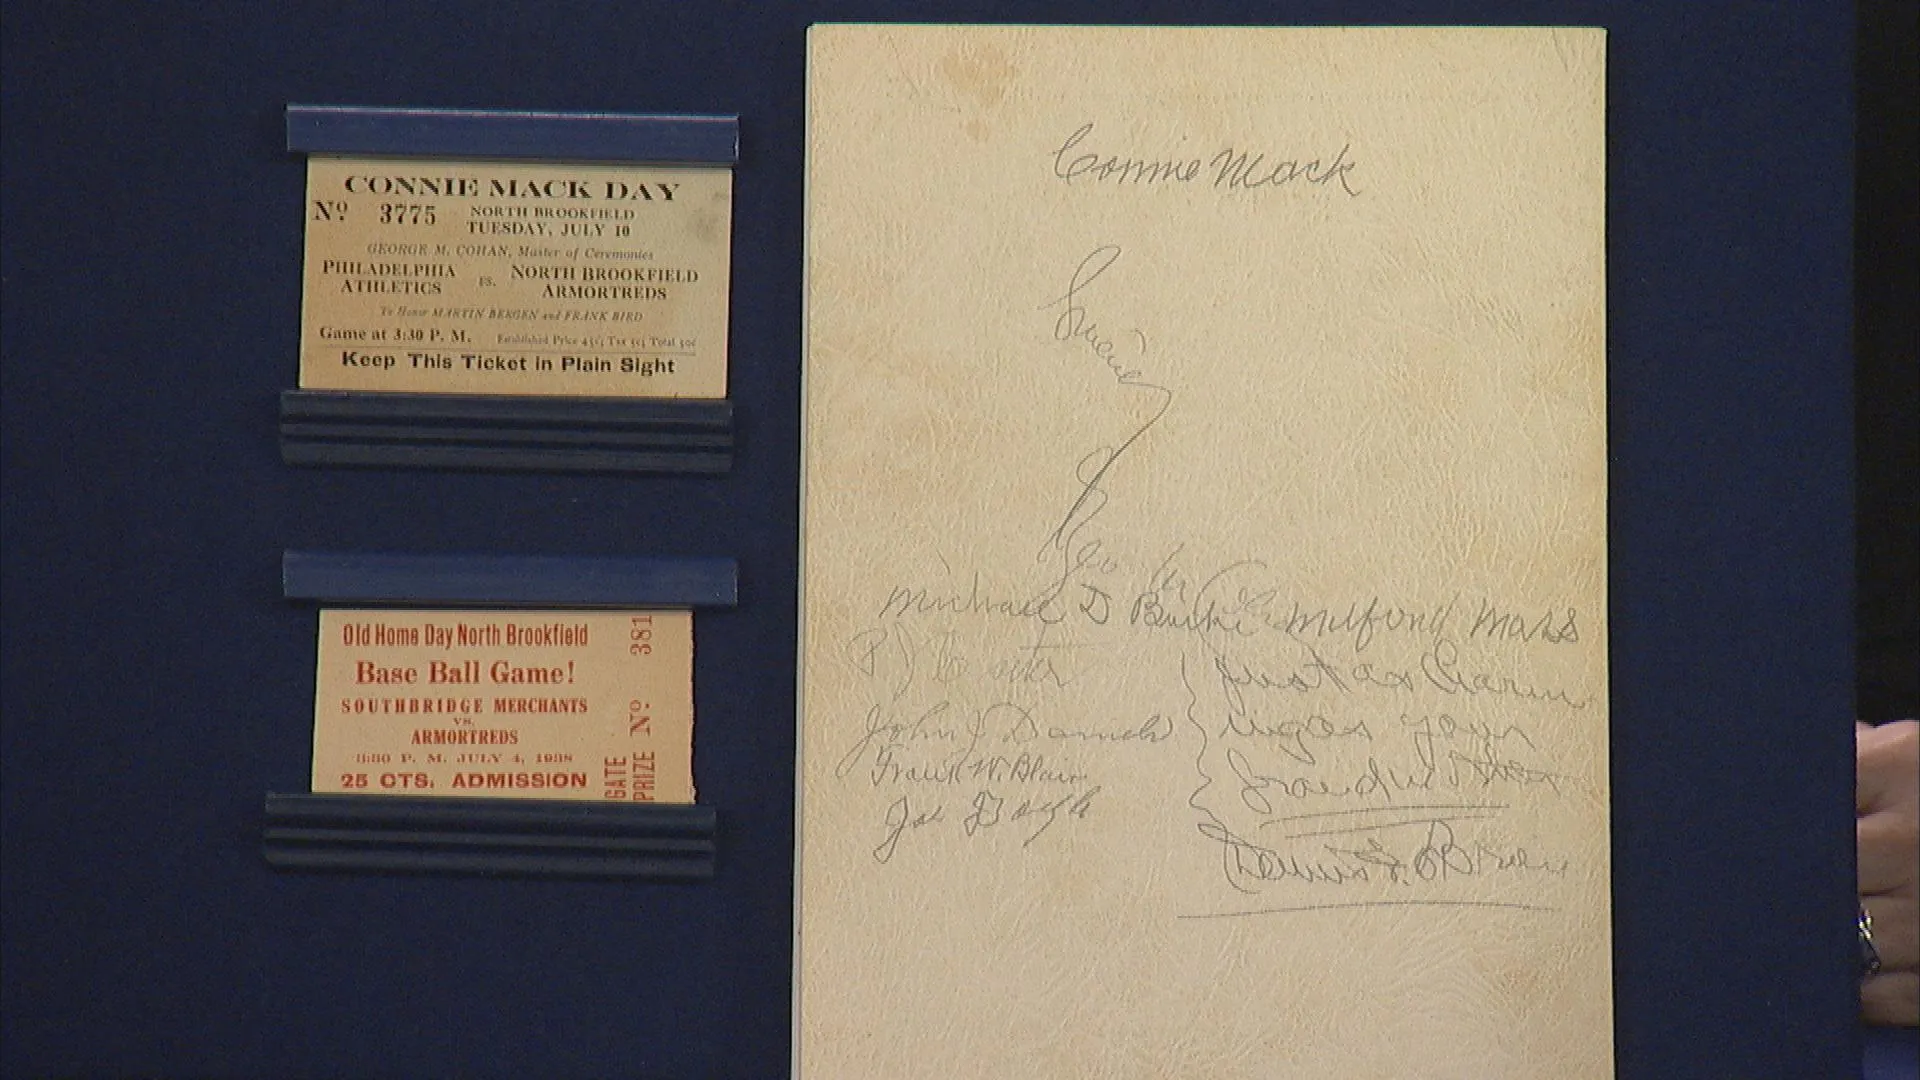 CONNIE MACK DAY
Nº 3775
NORTH BROOKFIELD
TUESDAY, JULY 10
GEORGE M. COHAN, Master of Ceremonies
PHILADELPHIA ATHLETICS
VS.
NORTH BROOKFIELD ARMORTREDS
To Honor MARTIN BERGEN and FRANK BIRD
Game at 3:30 P. M.
Established Price 45c; Tax 5c; Total 50c
Keep This Ticket in Plain Sight
Old Home Day North Brookfield
Base Ball Game!
SOUTHBRIDGE MERCHANTS
VS.
ARMORTREDS
3:30 P. M. JULY 4, 1938
25 CTS. ADMISSION
GATE PRIZE Nº. 381
Connie Mack
Michael D Burke Milford Mass
John J Daniels
Frank W. Blair
Just as Charming as your